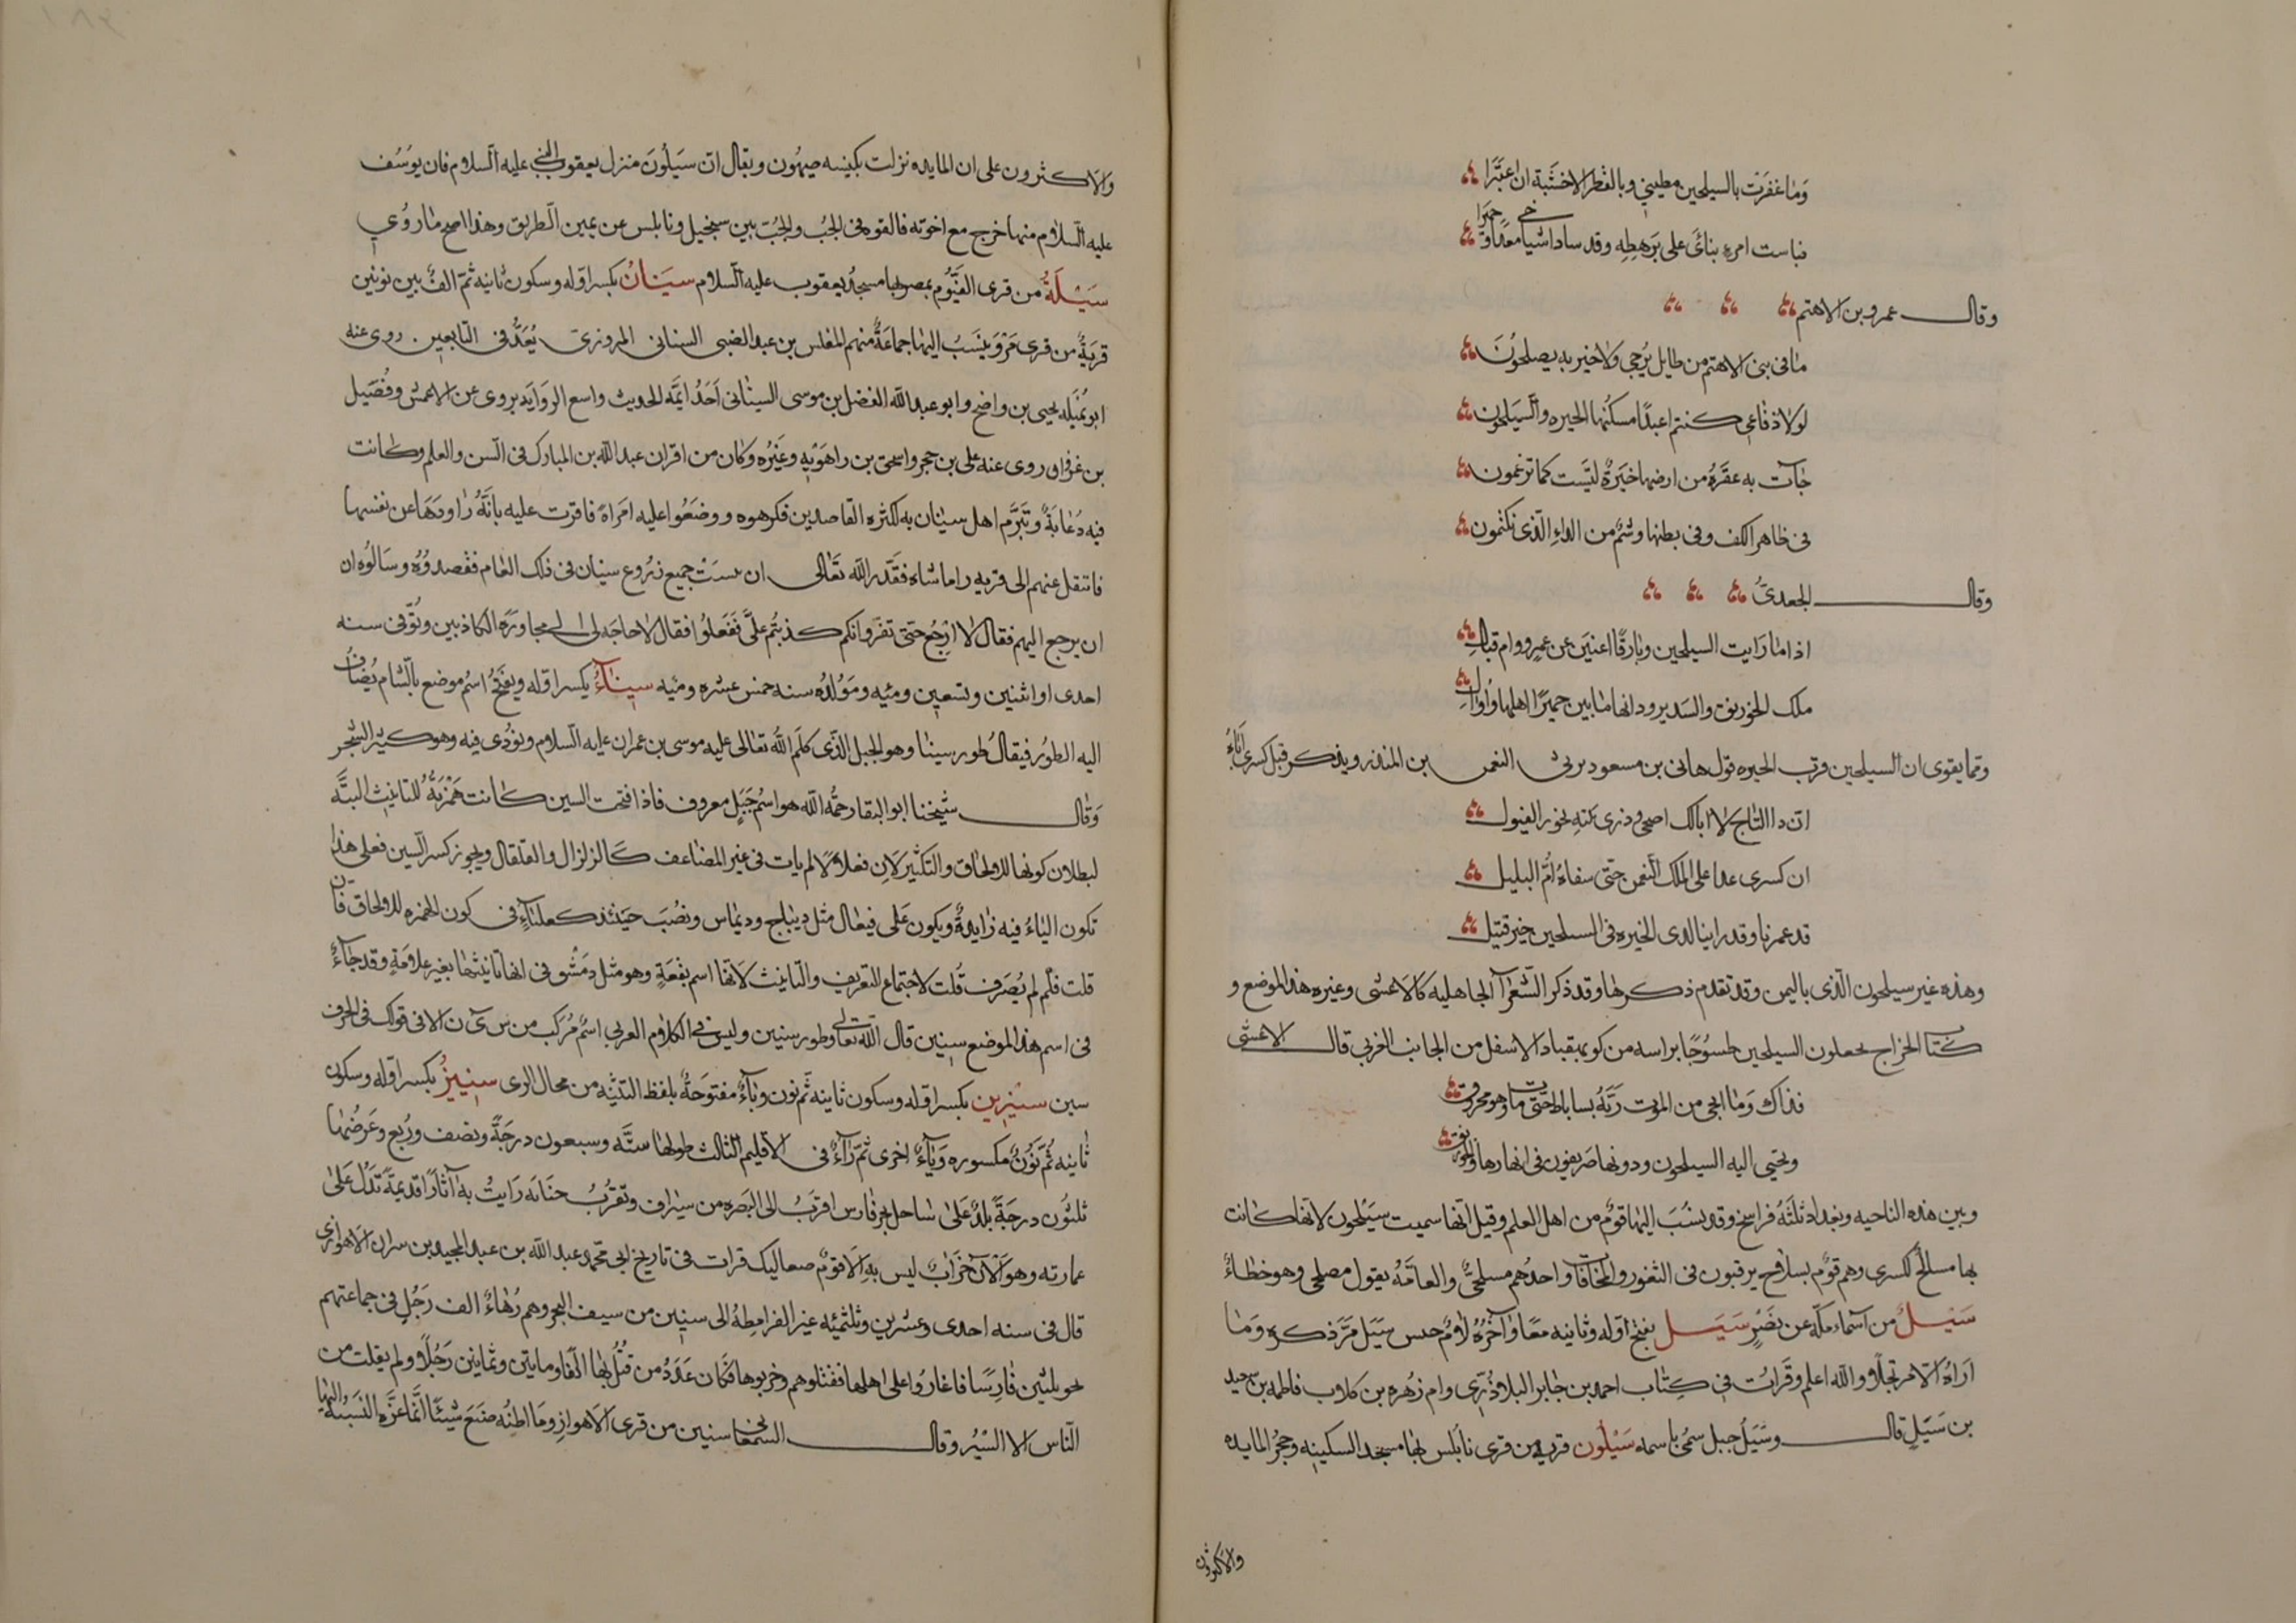 وما غفرت بالسيلحين مطيتي وبالقطر الا خشية ان اعبرا
فباست امرء بنائى على برهطه وقد ساد اشياخي معدا وحميرا
وقال عمرو بن الاهتم
ما فى بنى الاهتم من طايل يرجى ولا خير به يصلحون
لولا دفاعى كنتم اعبدا مسكنها الحيره والسيلحون
جات به عقرة من ارضها خيرة ليست كما تزعمون
فى ظاهر الكف وفى بطنها وشم من الداء الذى تكتمون
وقال الجعدى
اذا ما رايت السيلحين وبارقا اغنين عن عمرو وام قبال
ملك الخورنق والسدير ودانها ما بين حمير اهلها واوال
ومما يقوى ان السيلحين قرب الحيره قول هانى بن مسعود يرثى النعمن بن المنذر ويذكر قتل كسرى اياه
ان ذا التاج لا ابا لك اضحى وذرى بيته نحور الفيول
ان كسرى عدا على الملك النعمن حتى سقاه ام البليل
قد عمرنا وقد راينا لدى الحيره فى السيلحين خير قتيل
وهذه غير سيلحون الذى باليمن وقد تقدم ذكرها وقد ذكر الشعرآ الجاهليه كالاعشى وغيره هذا الموضع و
كتاب الخراج يجعلون السيلحين طسوجا براسه من كورة بهقباد الاسفل من الجانب الغربى قال الاعشى
فذاك وما انجى من الموت ربه بساباط حتى مات وهو محرزق
وتجبى اليه السيلحون ودونها صريفون فى انهارها والخورنق
وبين هذه الناحيه وبغداد ثلثة فراسخ وقد ينسب اليها قوم من اهل العلم وقيل انها سميت سيلحون لانها كانت
بها مسالح لكسرى وهم قوم بسلاح يرقبون فى الثغور والمخافات واحدهم مسلحى والعامه يقول مصلحى وهو خطاء
سيل من اسماء مكة عن نصر سيل بفتح اوله وثانيه معا وآخره لام حبس سيل مر ذكره وما
اراه الا مرتجلا والله اعلم وقرات فى كتاب احمد بن جابر البلاذرى وام زهره بن كلاب فاطمه بن سعيد
بن سيل قال وسيل جبل سمى باسمه سيلون قرية من قرى نابلس بها مسجد السكينه وحجر المايده
والاكثرون
والاكثرون على ان المايده نزلت بكنيسه صيهون ويقال ان سيلون منزل يعقوب النبى عليه السلام فان يوسف
عليه السلام منها خرج مع اخوته فالقوه فى الجب والجب بين سنجيل ونابلس عن يمين الطريق وهذا اصح ما روى
سيلة من قرى الفيوم بمصر بها مسجد يعقوب عليه السلام سينان بكسر اوله وسكون ثانيه ثم الف بين نونين
قرية من قرى مرو ينسب اليها جماعة منهم المغلس بن عبد الضبى السينانى المروزى يعد فى التابعين روى عنه
ابو تميله يحيى بن واضح وابو عبد الله الفضل بن موسى السينانى احد ايمة الحديث واسع الروايه يروى عن الاعمش وفضيل
بن غزوان روى عنه على بن حجر واسحق بن راهويه وغيره وكان من اقران عبد الله بن المبارك فى السن والعلم وكانت
فيه دعابة وتبرم اهل سينان به لكثره القاصدين فكرهوه ووضعوا عليه امراة فاقرت عليه بانه راودها عن نفسها
فانتقل عنهم الى قريه راماشاه فقدر الله تعالى ان يبست جميع زروع سينان فى ذلك العام فقصدوه وسالوه ان
ان يرجع اليهم فقال لا ارجع حتى تقروا انكم كذبتم على ففعلوا فقال لا حاجه لى الى مجاورة الكاذبين وتوفى سنه
احدى او اثنين وتسعين ومئيه ومولده سنه خمس عشره ومئيه سيناء بكسر اوله ويفتح اسم موضع بالشام يضاف
اليه الطور فيقال طور سينا وهو الجبل الذى كلم الله تعالى عليه موسى بن عمران عليه السلام ونودى فيه وهو كثير الشجر
وقال شيخنا ابو البقا رحمه الله هو اسم جبل معروف فاذا فتحت السين كانت همزته للتانيث البتة
لبطلان كونها للالحاق والتكثير لان فعلالا لم يات فى غير المضاعف كالزلزال والقلقال ويجوز كسر السين فعلى هذا
تكون الياء فيه زايدة ويكون على فيعال مثل ديباج وديماس ونصب حينئذ كعلباء فى كون الهمزه للالحاق فان
قلت فلم لم يصرف قلت لاجتماع التعريف والتانيث لانها اسم بقعة وهو مثل دمشق فى انها تانيثها بغير علامة وقد جاء
فى اسم هذا الموضع سينين قال الله تعالى وطور سينين وليس فى الكلام العربى اسم مركب من س ى ن الا فى قولك فى الحرف
سين سينرين بكسر اوله وسكون ثانيه ثم نون وباء مفتوحة بلفظ التثنيه من محال الرى سينيز بكسر اوله وسكون
ثانيه ثم نون مكسوره وياء اخرى ثم زاء فى الاقليم الثالث طولها ستة وسبعون درجة ونصف وربع وعرضها
ثلثون درجة بلد على ساحل بحر فارس اقرب الى البصره من سيراف وتقرب جنابه رايت به آثارا قديمة تدل على
عمارته وهو الآن خراب ليس به الا قوم صعاليك قرات فى تاريخ ابى محمد عبد الله بن عبد المجيد بن سران الاهوازى
قال فى سنه احدى وعشرين وثلثمئيه عبر القرامطه الى سينيز من سيف البحر وهم زهاء الف رجل فى جماعتهم
نحو ثلثين فارسا فاغاروا على اهلها فقتلوهم وخربوها فكان عدد من قتل بها الفا ومايتين وثمانين رجلا ولم يفلت من
الناس الا اليسير وقال السمعانى سينيز من قرى الاهواز وما اظنه صنع شيئا انما غره النسبة اليها